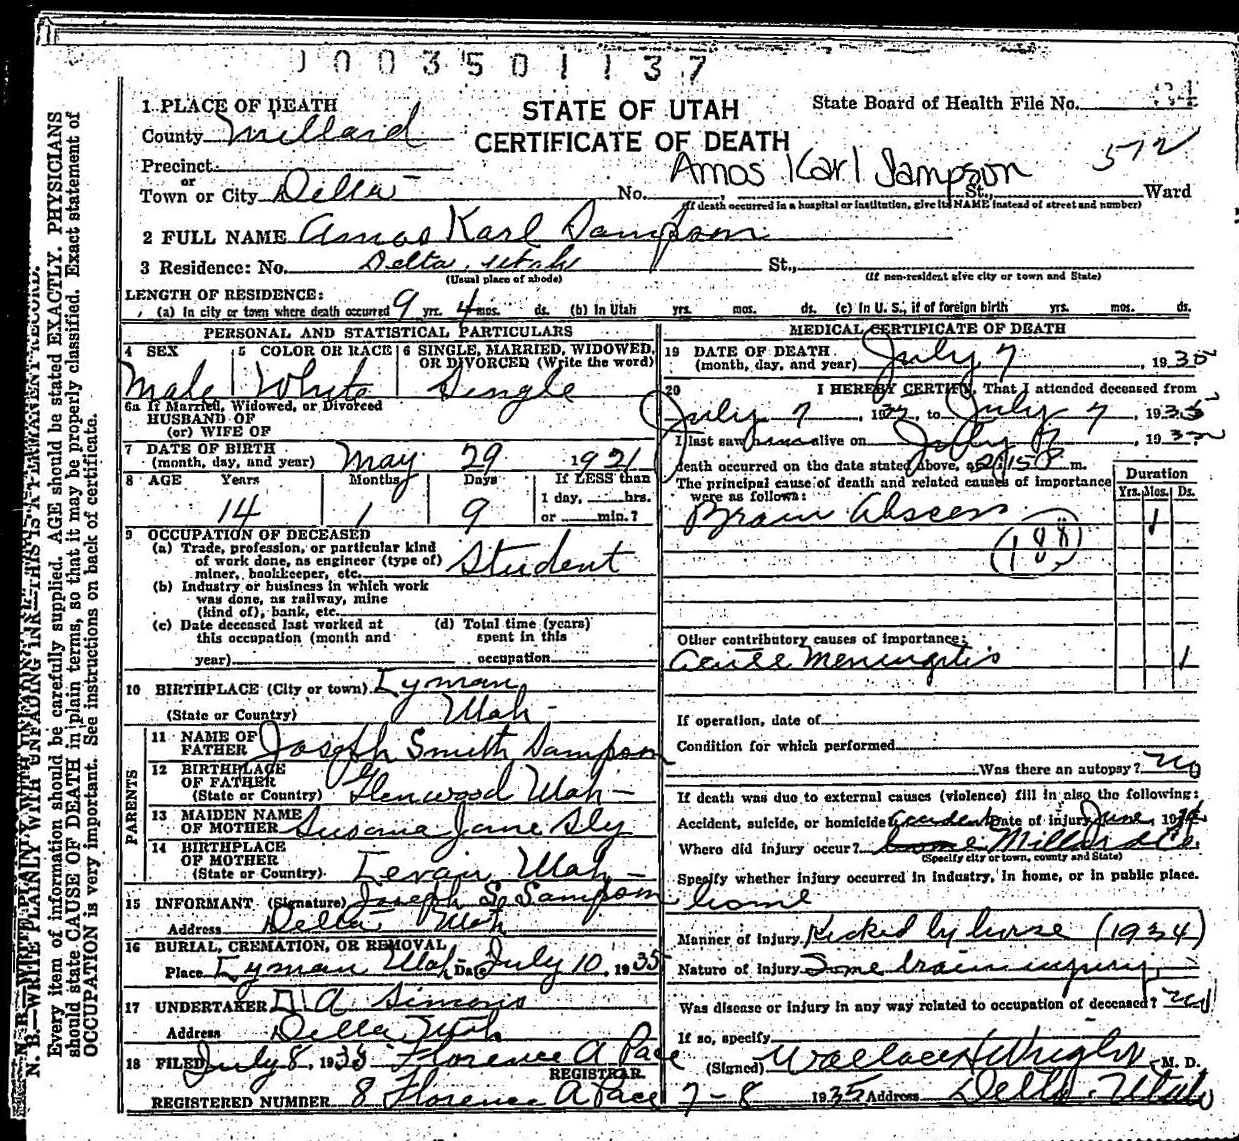 1003501137
1 PLACE OF DEATH
STATE OF UTAH
State Board of Health File No.
County Millard
CERTIFICATE OF DEATH
Precinct
Amos Karl Sampson 572
or
Town or City Delta No. St., Ward
(If death occurred in a hospital or institution, give its NAME instead of street and number)
2 FULL NAME Amos Karl Sampson
3 Residence: No. Delta, Utah St.,
(Usual place of abode) (If non-resident give city or town and State)
LENGTH OF RESIDENCE:
(a) In city or town where death occurred 9 yrs. 4 mos. ds. (b) In Utah yrs. mos. ds. (c) In U. S., if of foreign birth yrs. mos. ds.
PERSONAL AND STATISTICAL PARTICULARS
4 SEX 5 COLOR OR RACE 6 SINGLE, MARRIED, WIDOWED, OR DIVORCED (Write the word)
Male White Single
6a If Married, Widowed, or Divorced
HUSBAND OF
(or) WIFE OF
7 DATE OF BIRTH
(month, day, and year) May 29 1921
8 AGE Years Months Days If LESS than
1 day, hrs.
or min.?
14 1 9
9 OCCUPATION OF DECEASED
(a) Trade, profession, or particular kind
of work done, as engineer (type of)
miner, bookkeeper, etc. Student
(b) Industry or business in which work
was done, as railway, mine
(kind of), bank, etc.
(c) Date deceased last worked at
this occupation (month and
year)
(d) Total time (years)
spent in this
occupation
10 BIRTHPLACE (City or town) Lyman
(State or Country) Utah
PARENTS
11 NAME OF
FATHER Joseph Smith Sampson
12 BIRTHPLACE
OF FATHER
(State or Country) Glenwood Utah
13 MAIDEN NAME
OF MOTHER Susana Jane Sly
14 BIRTHPLACE
OF MOTHER
(State or Country) Levan, Utah
15 INFORMANT (Signature) Joseph S. Sampson
Address Delta Utah
16 BURIAL, CREMATION, OR REMOVAL
Place Lyman Utah Date July 10, 1935
17 UNDERTAKER A Simons
Address Delta Utah
18 FILED July 8, 1935 Florence A Pace
REGISTRAR
REGISTERED NUMBER 8 Florence A Pace
MEDICAL CERTIFICATE OF DEATH
19 DATE OF DEATH
(month, day, and year) July 7, 1935
20 I HEREBY CERTIFY, That I attended deceased from
July 7, 1935, to July 7, 1935
I last saw him alive on July 7, 1935
death occurred on the date stated above, at 2:15 P m.
The principal cause of death and related causes of importance
were as follows:
Duration
Yrs. Mos. Ds.
Brain Abscess 1
(188)
Other contributory causes of importance:
Acute Meningitis 1
If operation, date of
Condition for which performed
Was there an autopsy? No
If death was due to external causes (violence) fill in also the following:
Accident, suicide, or homicide? Accident Date of injury June, 19
Where did injury occur? home Millard Co.
(Specify city or town, county and State)
Specify whether injury occurred in industry, in home, or in public place.
home
Manner of injury Kicked by horse (1934)
Nature of injury Some brain injury
Was disease or injury in any way related to occupation of deceased? No
If so, specify
(Signed) Wallace H Wright M. D.
7-8 1935 Address Delta Utah
N. B.—WRITE PLAINLY WITH UNFADING INK—THIS IS A PERMANENT RECORD.
Every item of information should be carefully supplied. AGE should be stated EXACTLY. PHYSICIANS
should state CAUSE OF DEATH in plain terms, so that it may be properly classified. Exact statement of
OCCUPATION is very important. See instructions on back of certificate.